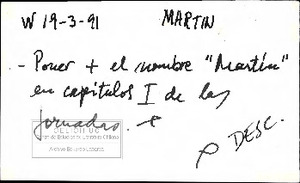 W 19-3-91 MARTIN
- Poner + el nombre "Martín"
en capítulos I de las
jornadas. +
DESC.